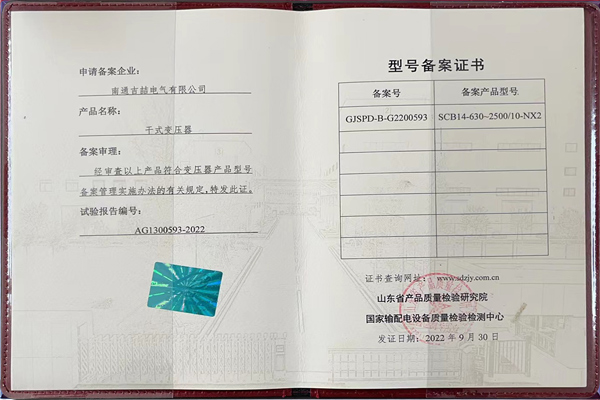 申请备案企业：
南通吉喆电气有限公司
产品名称：
干式变压器
备案审理：
经审查以上产品符合变压器产品型号
备案管理实施办法的有关规定，特发此证。
试验报告编号：
AG1300593-2022
型号备案证书
备案号 备案产品型号
GJSPD-B-G2200593 SCB14-630~2500/10-NX2
证书查询网址： www.sdzjy.com.cn
山东省产品质量检验研究院
国家输配电设备质量检验检测中心
发证日期：2022 年 9 月 30 日